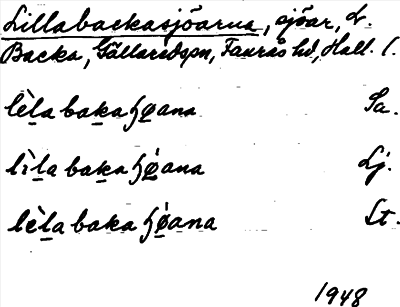 Lillabackasjöarna, sjöar, Lt.
Backa, Gällaredspn, Faurås hd, Hall. l.
lèla baka ɧøana Sa.
lìla baka ɧǿana Lj.
lèla baka ɧǿana Lt.
1948